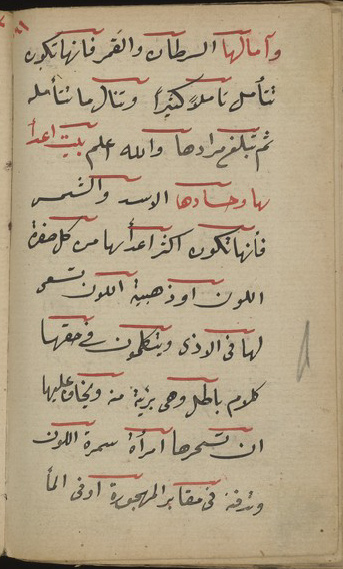 وآمالها السرطان والقمر فانها تكون
تتأمل تاملاً كثيرًا وتنال ما تتأمله
ثم تبلغ مرادها والله اعلم بيت اعدا
ئها وحسادها الاسد والشمس
فأنها تكون اكثر اعدائها من كل صفرة
اللون اوذهبية اللون تسعى
لها فى الاذى ويتكلمون فى حقها
كلام باطل وهى برية منه ويخاف عليها
ان تسحرها امرأة سمرة اللون
وتدفنه فى مقابر المهجورة او فى الما